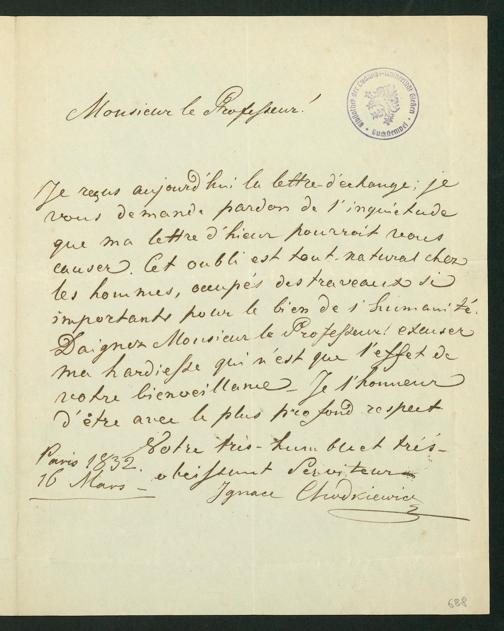 Monsieur le Professeur!
Bibliothek der Ludwigs-Universität Gießen
Buchstempel
Je reçus aujourd'hui la lettre d'echange; je
vous demande pardon de l'inquiétude
que ma lettre d'hieur pourroit vous
causer. Cet oubli est tout-natural chez
les hommes, occupés des traveaux si
importants pour le bien de l'humanité.
Daignez Monsieur le Professeur! excuser
ma hardiesse qui n'est que l'effet de
votre bienveillance_ Je l'honneur
d'être avec le plus profond respect
Votre très-humble et trés-
obeissant Serviteur
Paris 1832.
16 Mars_
Ignace Chodkiewicz
688